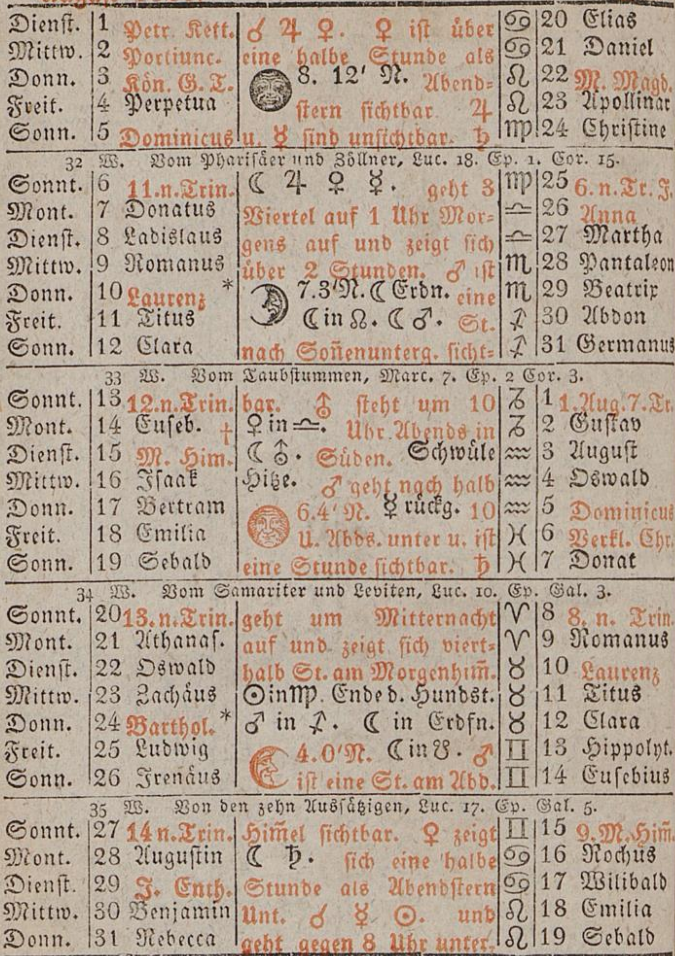 Dienst. 1 Petr. Kett. ☌ ♃ ♀. ♀ ist über ♋ 20 Elias
Mittw. 2 Portiunc. eine halbe Stunde als ♋ 21 Daniel
Donn. 3 Kön. G. T. 8. 12' N. Abend= ♌ 22 M. Magd.
Freit. 4 Perpetua stern sichtbar. ♃ ♌ 23 Apollinar
Sonn. 5 Dominicus u. ☿ sind unsichtbar. ♄ ♍ 24 Christine
32 W. Vom Pharisäer und Zöllner, Luc. 18. Ep. 1. Cor. 15.
Sonnt. 6 11.n.Trin. ☾ ♃ ♀ ☿. geht 3 ♍ 25 6.n.Tr. J.
Mont. 7 Donatus Viertel auf 1 Uhr Mor= ♎ 26 Anna
Dienst. 8 Ladislaus gens auf und zeigt sich ♎ 27 Martha
Mittw. 9 Romanus über 2 Stunden. ♂ ist ♏ 28 Pantaleon
Donn. 10 Laurenz * 7.3'N. ☾ Erdn. eine ♏ 29 Beatrix
Freit. 11 Titus ☾ in ☊. ☾ ♂. St. ♐ 30 Abdon
Sonn. 12 Clara nach Soñenunterg. sicht= ♐ 31 Germanus
33 W. Vom Taubstummen, Marc. 7. Ep. 2 Cor. 3.
Sonnt. 13 12.n.Trin. bar. ⛢ steht um 10 ♑ 1 1.Aug.7.Tr.
Mont. 14 Euseb. † ♀ in ♎. Uhr Abends in ♑ 2 Gustav
Dienst. 15 M. Him. ☾ ⛢. Süden. Schwüle ♒ 3 August
Mittw. 16 Isaak Hitze. ♂ geht nach halb ♒ 4 Oswald
Donn. 17 Bertram 6.4' N. ☿ rückg. 10 ♒ 5 Dominicus
Freit. 18 Emilia U. Abds. unter u. ist ♓ 6 Verkl. Chr.
Sonn. 19 Sebald eine Stunde sichtbar. ♄ ♓ 7 Donat
34 W. Vom Samariter und Leviten, Luc. 10. Ep. Gal. 3.
Sonnt. 20 13.n.Trin. geht um Mitternacht ♈ 8 8. n. Trin.
Mont. 21 Athanas. auf und zeigt sich viert= ♈ 9 Romanus
Dienst. 22 Oswald halb St. am Morgenhim̃. ♉ 10 Laurenz
Mittw. 23 Zachäus ☉ in ♍. Ende d. Hundst. ♉ 11 Titus
Donn. 24 Barthol. * ♂ in ♐. ☾ in Erdfn. ♉ 12 Clara
Freit. 25 Ludwig 4.0'N. ☾ in ☋. ♂ ♊ 13 Hippolyt.
Sonn. 26 Irenäus ist eine St. am Abd. ♊ 14 Eusebius
35 W. Von den zehn Aussätzigen, Luc. 17. Ep. Gal. 5.
Sonnt. 27 14 n.Trin. Him̃el sichtbar. ♀ zeigt ♊ 15 9. M. Him̃.
Mont. 28 Augustin ☾ ♄. sich eine halbe ♋ 16 Rochus
Dienst. 29 J. Enth. Stunde als Abendstern ♋ 17 Wilibald
Mittw. 30 Benjamin Unt. ☌ ☿ ☉. und ♌ 18 Emilia
Donn. 31 Rebecca geht gegen 8 Uhr unter. ♌ 19 Sebald